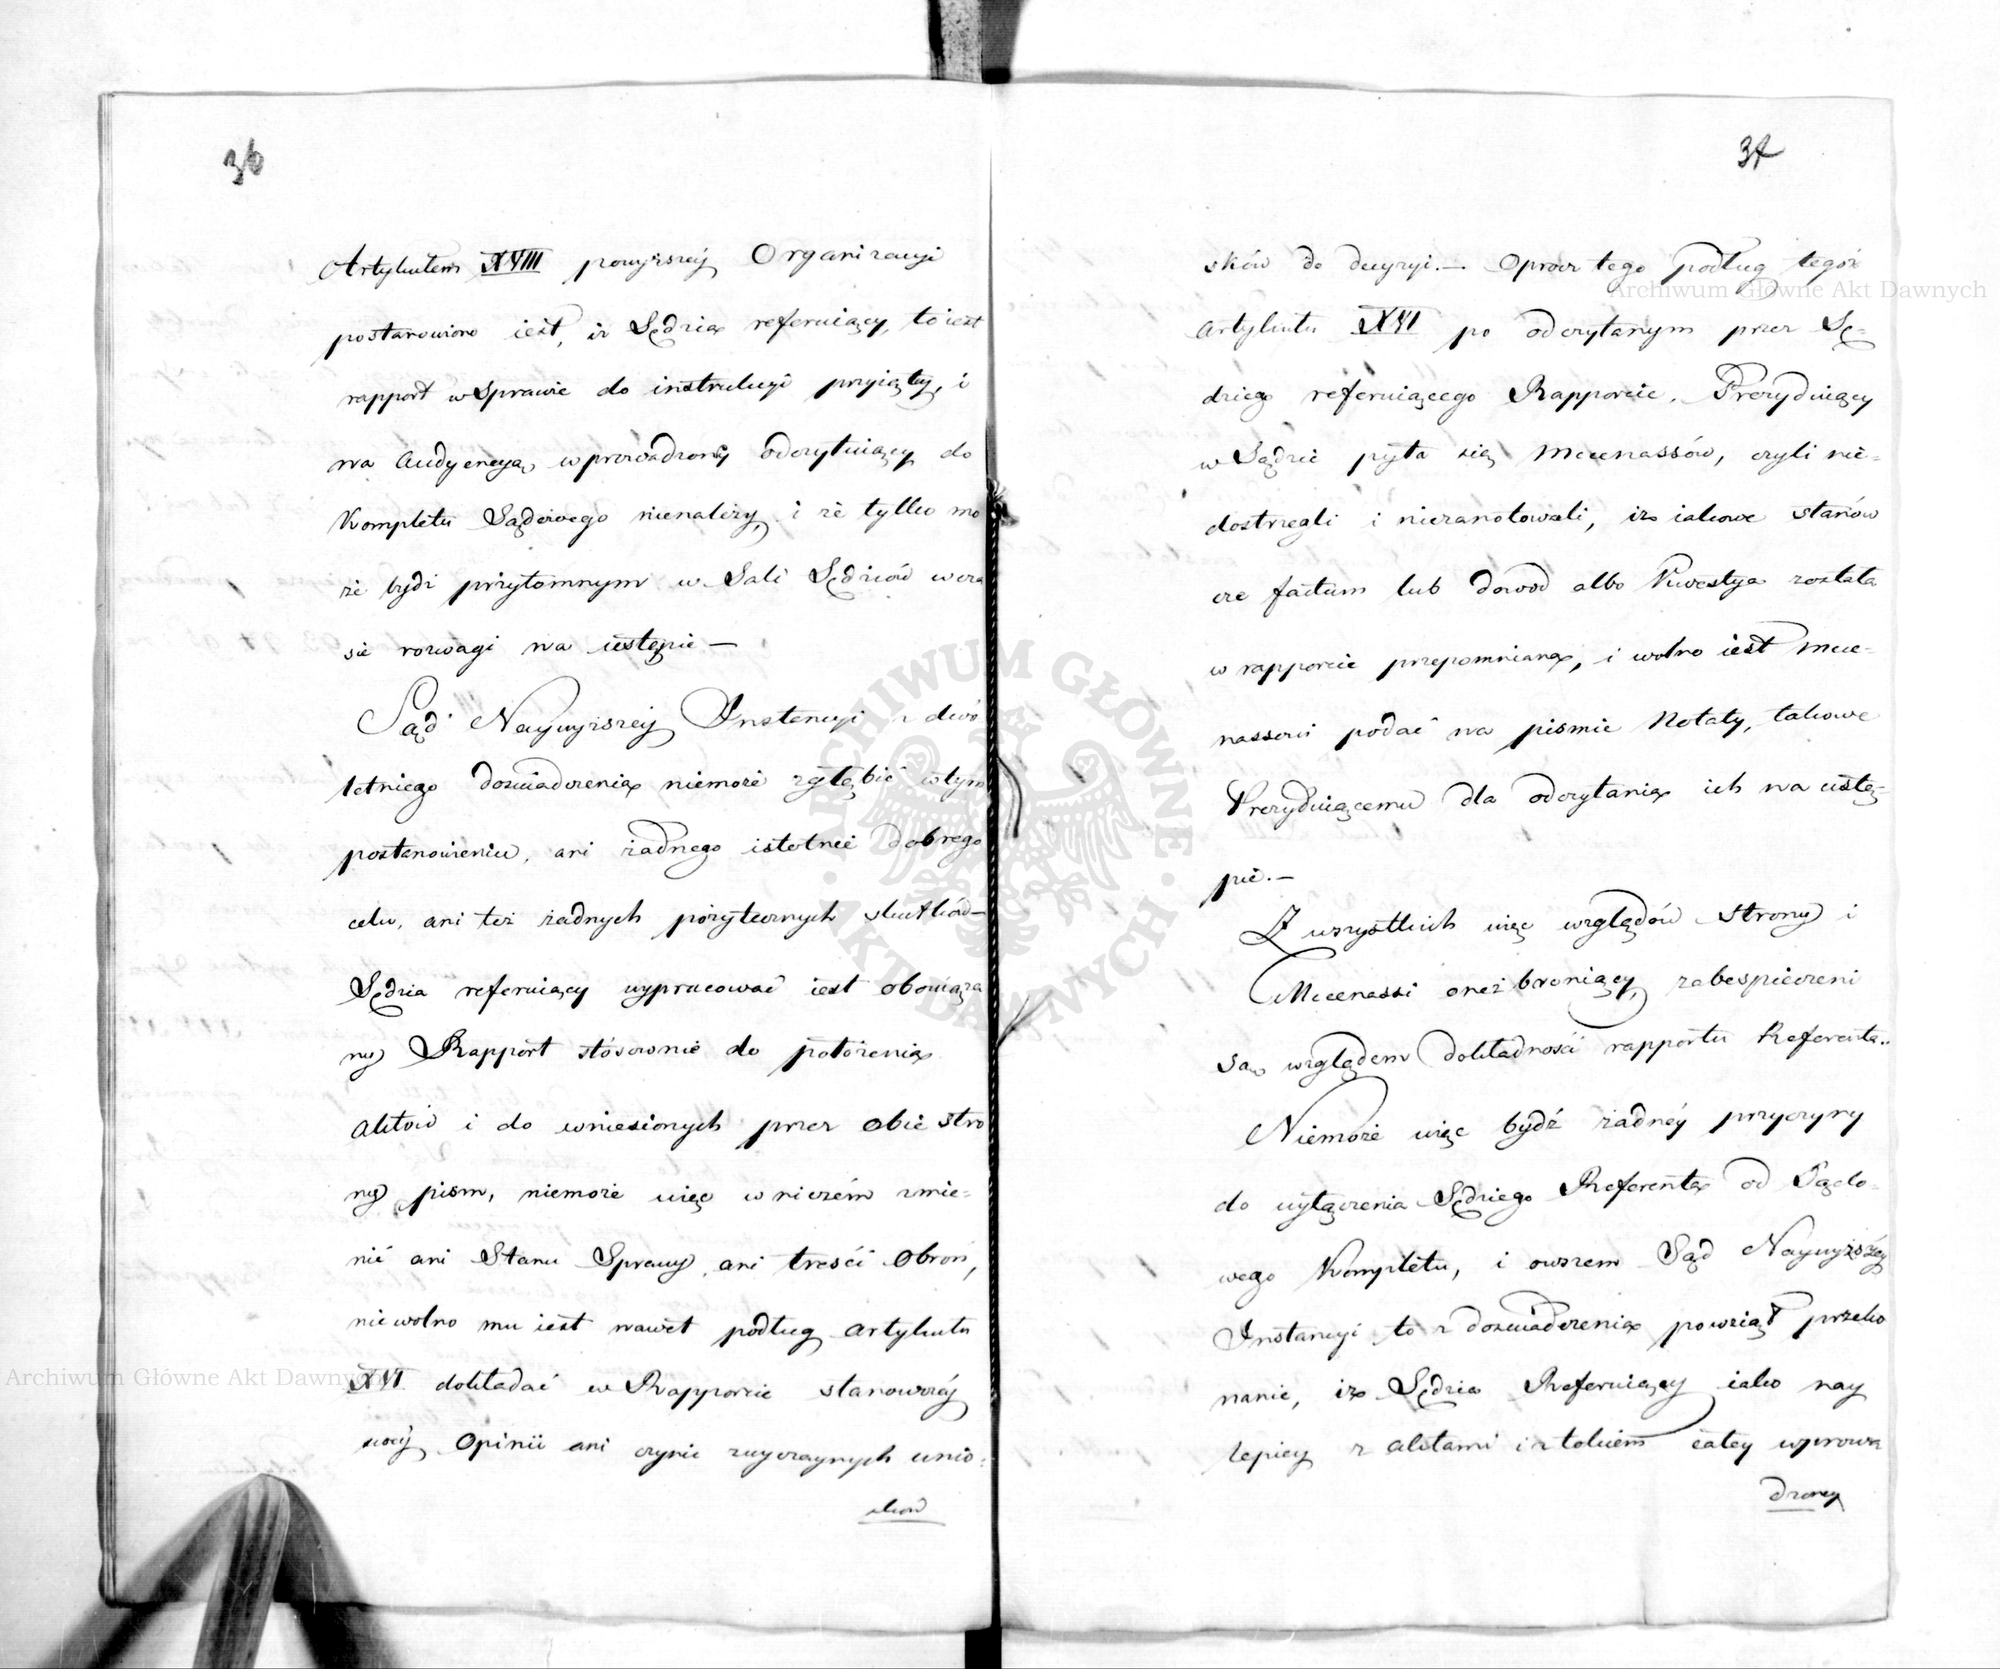 36
Artykułem XVIII powyższéy Organizacyi
postanowiono iest, iż Sędzia referuiący, to iest
rapport w Sprawie do instrukcyi przyiętéy, i
na Audyencyą wprowadzonéy odczytuiący do
Kompletu Sądowego nienależy, i że tylko mo
że bydź przytomnym w Sali Sędziów w cza
sie rozwagi na ustępie —
Sąd Naywyższéy Instancyi z dwó
letniego doswiadczenia niemoże zgłębić w tym
postanowieniu, ani żadnego istotnie dobrego
celu, ani też żadnych pożytecznych skutków —
Sędzia referuiący wypracować iest obowiąza
ny Rapport stósownie do położenia
Aktów i do wniesionych przez obie stro
ny pism, niemoże więc w niczém zmie-
nić ani Stanu Sprawy, ani treści Obron,
niewolno mu iest nawet podług Artykułu
XVI dokładać w Rapporcie stanowczéy
swéy Opinii ani czynić zwyczaynych wnio-
sków
37
sków do decyzyi. — Oprócz tego podług tegóż
Artykułu XVI po odczytanym przez Sę-
dziego referuiącego Rapporcie, Prezyduiący
w Sądzie pyta się Mecenassów, czyli nie-
dostrzegli i niezanotowali, iż iakowe stanow
cze factum lub dowód albo Kwestya została
w rapporcie przepomniana, i wolno iest Mece-
nassowi podać na pismie Notaty, takowe
Prezyduiącemu dla odczytania ich na ustę-
pie. —
Z wszystkich więc względów Strony i
Mecenassi oneż broniący, zabespieczeni
są względem dokładności rapportu Referenta.
Niemoże więc bydź żadnéy przyczyny
do wyłączenia Sędziego Referenta od Sądo-
wego Kompletu, i owszem Sąd Naywyższéy
Instancyi to z doswiadczenia powziął przeko
nanie, iż Sędzia Referuiący iako nay
lepiey z aktami i z tokiem całey wprowa
dzoney
Archiwum Główne Akt Dawnych
Archiwum Główne Akt Dawnych
ARCHIWUM GŁÓWNE · AKT DAWNYCH ·